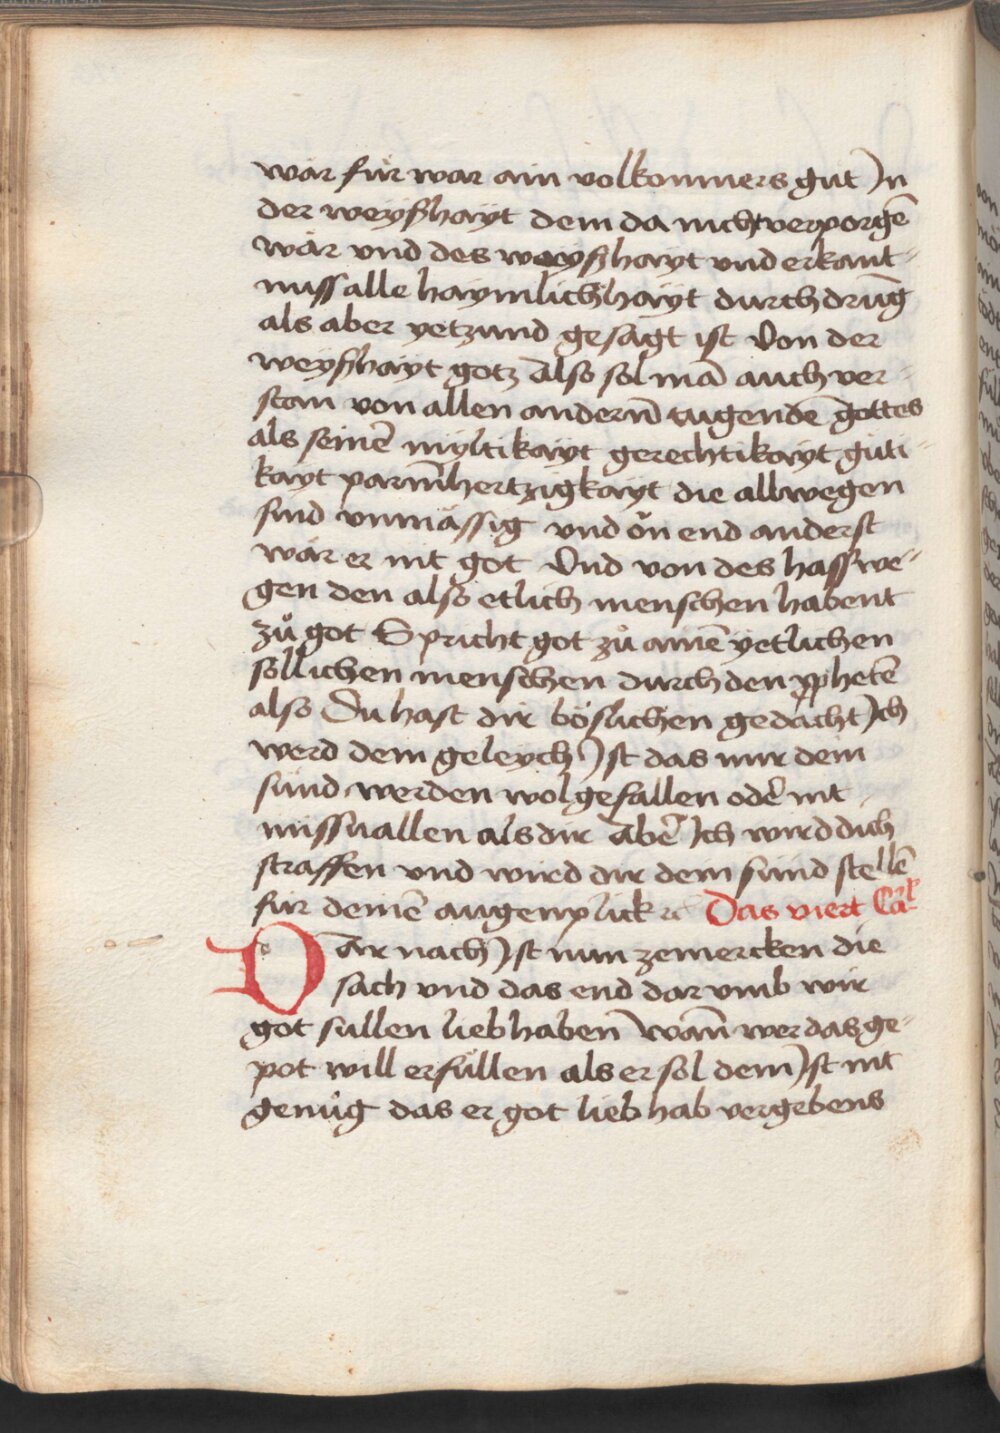 wär für war ain volkommers gut In
der weyßhayt dem da nicht verporgē
wär vnd des weyßhayt vnd erkant-
nuss alle haymlichhayt durchdrūg
als aber yetzund gesagt ist Von der
weyßhayt gotz Also sol mā auch ver-
stan von allen andern̄ tugendē gottes
als seinē myltikayt gerechtikayt güti-
kayt parm̄hertzigkayt die allwegen
sind vnmässig vnd ŏn end anderst
wär er nit got Vnd von des hass we-
gen den also etlich menschen habent
zů got Spricht got zů ainē yetlichen
söllichen menschen durch den ꝓphetē
also Du hast dir böslichen gedacht Ich
werd dein geleych Ist das mir dein
sünd werden wolgefallen odē nit
missuallen als dir Abē Ich wird dich
straffen vnd wird dir dein sünd stellē
für deinē augenplick ꝛc Das viert Cap̄l
DAr nach Ist nun zemercken die
sach vnd das end dar vmb wir
got süllen lieb haben Wan̄ wer das ge-
pot will erfüllen als er sol dem Ist nit
genůg das er got lieb hab vergebens